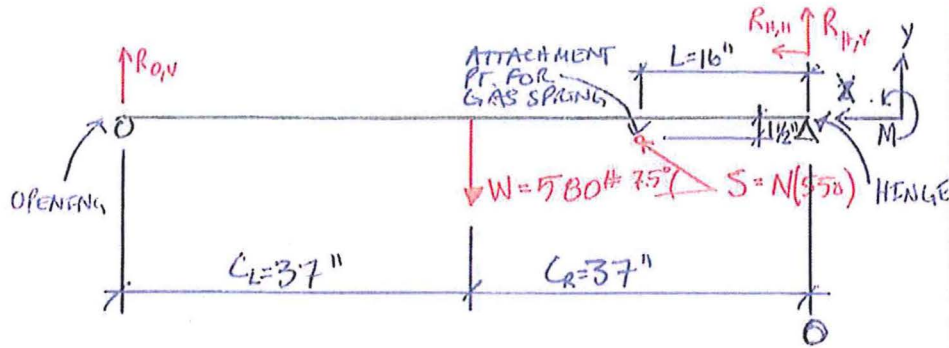 R_H,H R_H,V
R_O,V
ATTACHMENT
PT. FOR
GAS SPRING
L=16"
Y
X
M
1½"
OPENING
W=580#
7.5°
S=N(550)
HINGE
C_L=37"
C_R=37"
O